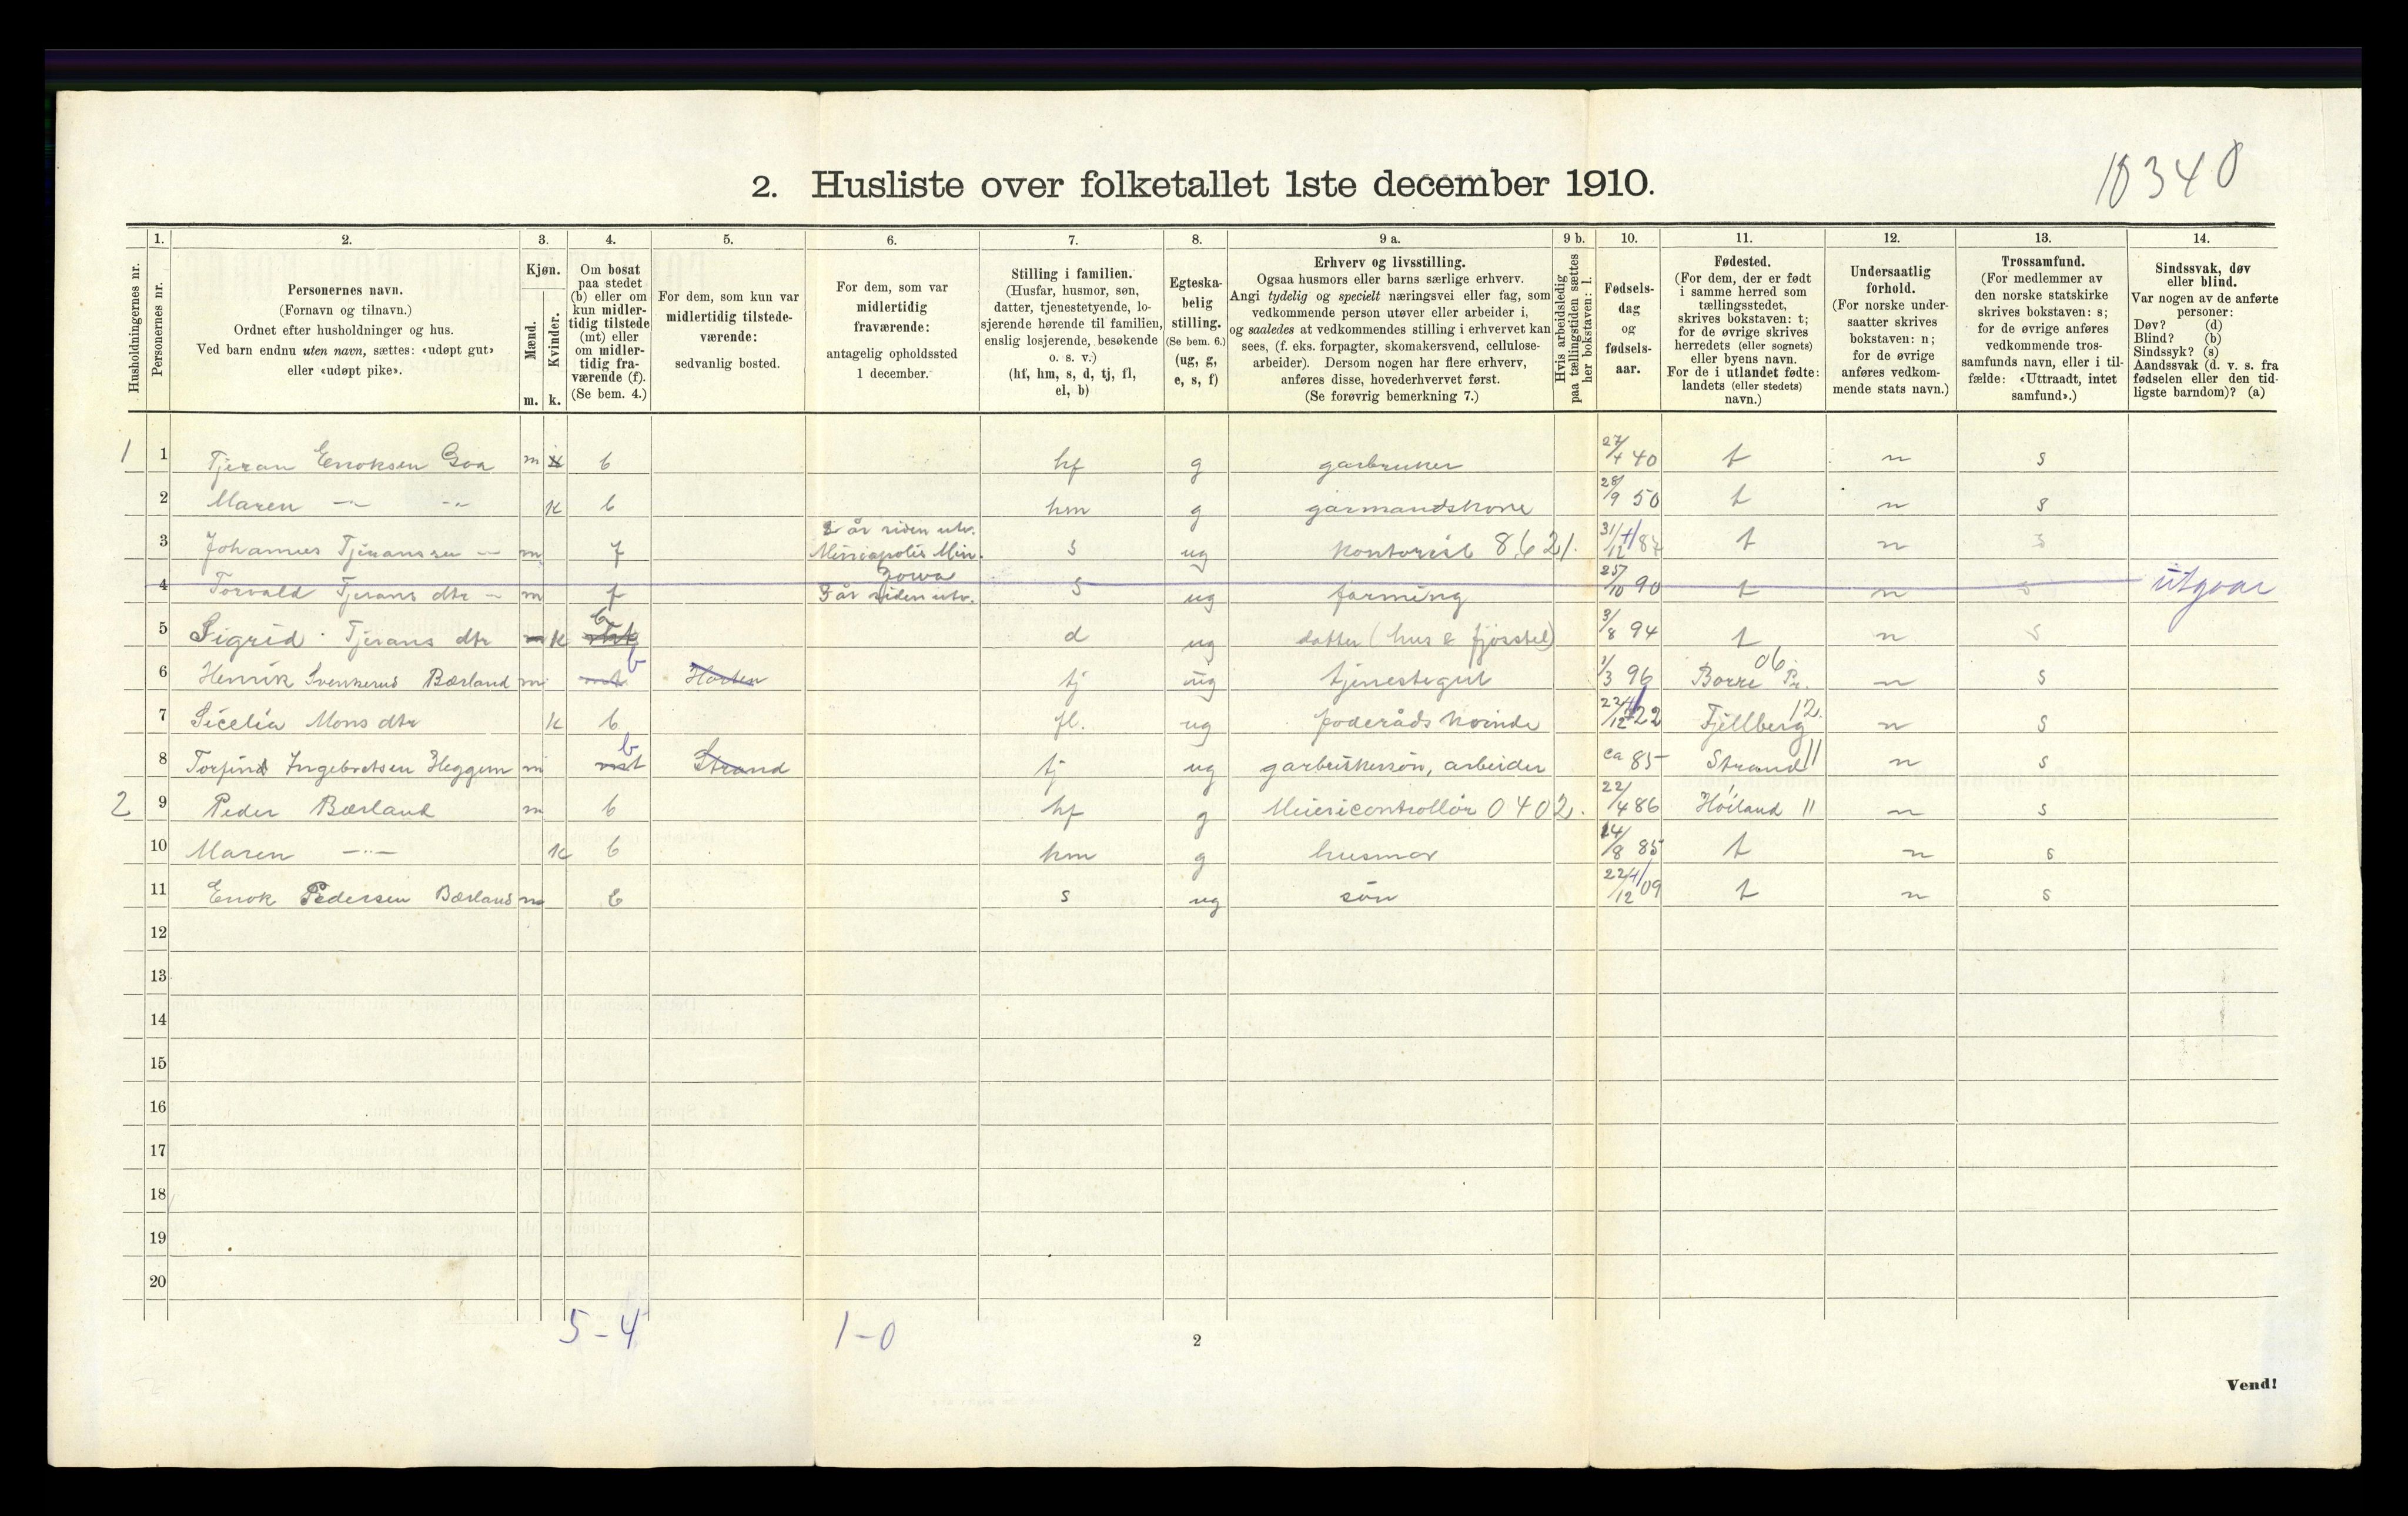 10340
2. Husliste over folketallet 1ste december 1910.
1. 2. 3. 4. 5. 6. 7. 8. 9 a. 9 b. 10. 11. 12. 13. 14.
Husholdningernes nr.
Personernes nr.
Personernes navn.
(Fornavn og tilnavn.)
Ordnet efter husholdninger og hus.
Ved barn endnu uten navn, sættes: «udøpt gut»
eller «udøpt pike».
Kjøn.
Mænd.
Kvinder.
m. k.
Om bosat
paa stedet
(b) eller om
kun midler-
tidig tilstede
(mt) eller
om midler-
tidig fra-
værende (f).
(Se bem. 4.)
For dem, som kun var
midlertidig tilstede-
værende:
sedvanlig bosted.
For dem, som var
midlertidig
fraværende:
antagelig opholdssted
1 december.
Stilling i familien.
(Husfar, husmor, søn,
datter, tjenestetyende, lo-
sjerende hørende til familien,
enslig losjerende, besøkende
o. s. v.)
(hf, hm, s, d, tj, fl,
el, b)
Egteska-
belig
stilling.
(Se bem. 6.)
(ug, g,
e, s, f)
Erhverv og livsstilling.
Ogsaa husmors eller barns særlige erhverv.
Angi tydelig og specielt næringsvei eller fag, som
vedkommende person utøver eller arbeider i,
og saaledes at vedkommendes stilling i erhvervet kan
sees, (f. eks. forpagter, skomakersvend, cellulose-
arbeider). Dersom nogen har flere erhverv,
anføres disse, hovederhvervet først.
(Se forøvrig bemerkning 7.)
Hvis arbeidsledig
paa tællingstiden sættes
her bokstaven: l.
Fødsels-
dag
og
fødsels-
aar.
Fødested.
(For dem, der er født
i samme herred som
tællingsstedet,
skrives bokstaven: t;
for de øvrige skrives
herredets (eller sognets)
eller byens navn.
For de i utlandet fødte:
landets (eller stedets)
navn.)
Undersaatlig
forhold.
(For norske under-
saatter skrives
bokstaven: n;
for de øvrige
anføres vedkom-
mende stats navn.)
Trossamfund.
(For medlemmer av
den norske statskirke
skrives bokstaven: s;
for de øvrige anføres
vedkommende tros-
samfunds navn, eller i til-
fælde: «Uttraadt, intet
samfund».)
Sindssvak, døv
eller blind.
Var nogen av de anførte
personer:
Døv? (d)
Blind? (b)
Sindssyk? (s)
Aandssvak (d. v. s. fra
fødselen eller den tid-
ligste barndom)? (a)
1 1 Tjeran Enoksen Goa m b hf g garbruker 27/4 40 t n s
2 Maren -"- -"- k b hm g garmandskone 28/9 50 t n s
2 år siden utv.
3 Johannes Tjeranssen - m f Minneapolis Min. s ug kontorist 8621. 31/12 87 t n s
Iowa
4 Torvald Tjerans dtr - m f 3 år siden utv. s ug farming 25/10 90 t n s utgaar
5 Sigrid Tjerans dtr m k b d ug datter (hus & fjøsstel) 3/8 94 t n s
6 Henrik Svenkerud Bærland m mt b Horten tj ug tjenestegut 1/3 96 Borre Pr. 06 n s
7 Sicelia Mons dtr k b fl. ug foderåds kvinde 22/12 22 Fjellberg 12 n s
8 Torfind Ingebretsen Heggem m mt b Strand tj ug garbrukersøn, arbeider ca 85 Strand 11 n s
2 9 Peder Bærland m b hf g Meiericontrollør 0402. 22/4 86 Høiland 11 n s
10 Maren -"- k b hm g husmor 14/8 85 t n s
11 Enok Pedersen Bærland m b s ug søn 22/12 09 t n s
12
13
14
15
16
17
18
19
20
5-4 1-0
2
Vend!